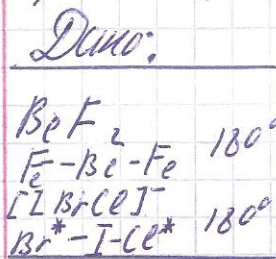 Дано:
BeF₂
Fe-Be-Fe 180°
[IBrCe]⁻
Br*-I-Ce* 180°